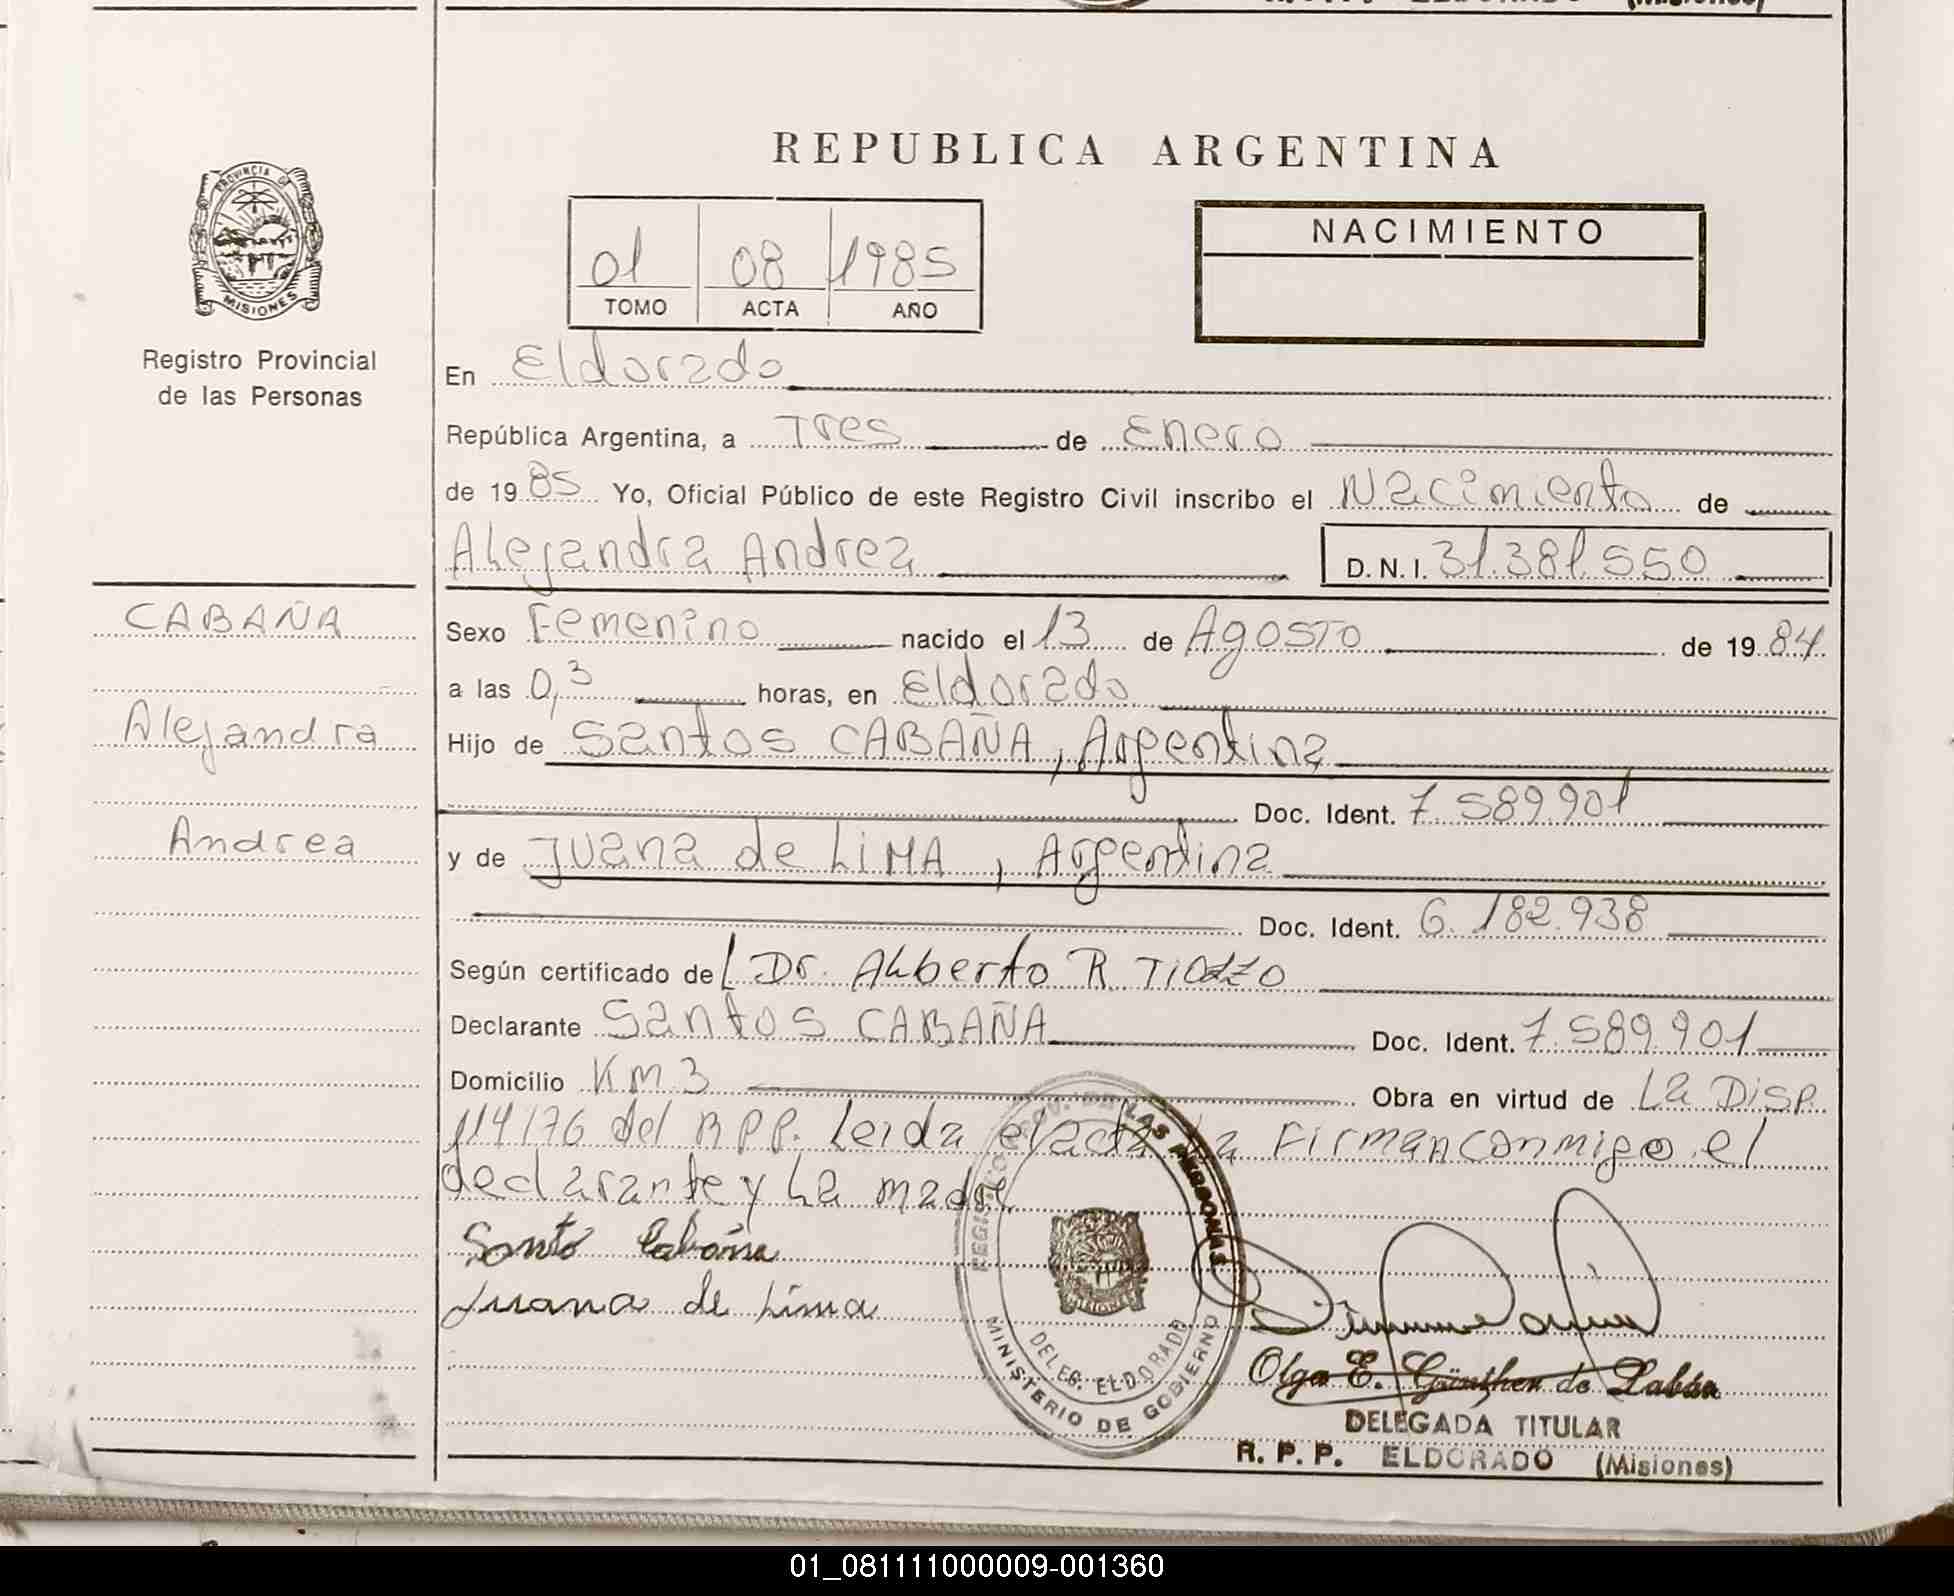 REPUBLICA ARGENTINA
PROVINCIA DE
MISIONES
Registro Provincial
de las Personas
01 08 1985
TOMO ACTA AÑO
NACIMIENTO
En Eldorado
República Argentina, a Tres de Enero
de 1985 Yo, Oficial Público de este Registro Civil inscribo el Nacimiento de
Alejandra Andrea D.N.I. 31.381.550
CABAÑA
Alejandra
Andrea
Sexo Femenino nacido el 13 de Agosto de 1984
a las 0,3 horas, en Eldorado
Hijo de Santos CABAÑA, Argentina
Doc. Ident. 7.589.901
y de Juana de LiMA, Argentina
Doc. Ident. 6.182.938
Según certificado del Dr. Alberto R.
Declarante Santos CABAÑA Doc. Ident. 7.589.901
Domicilio KM 3 Obra en virtud de La Disp.
114/76 del R.P.P. Leida el acta La Firman conmigo el
declarante y La madre
Santo Cabaña
Juana de Lima
DE LAS PERSONAS
MINISTERIO DE GOBIERNO
DELEG. ELDORADO
MISIONES
Olga E. Günther de Labán
DELEGADA TITULAR
R. P. P. ELDORADO (Misiones)
01_081111000009-001360